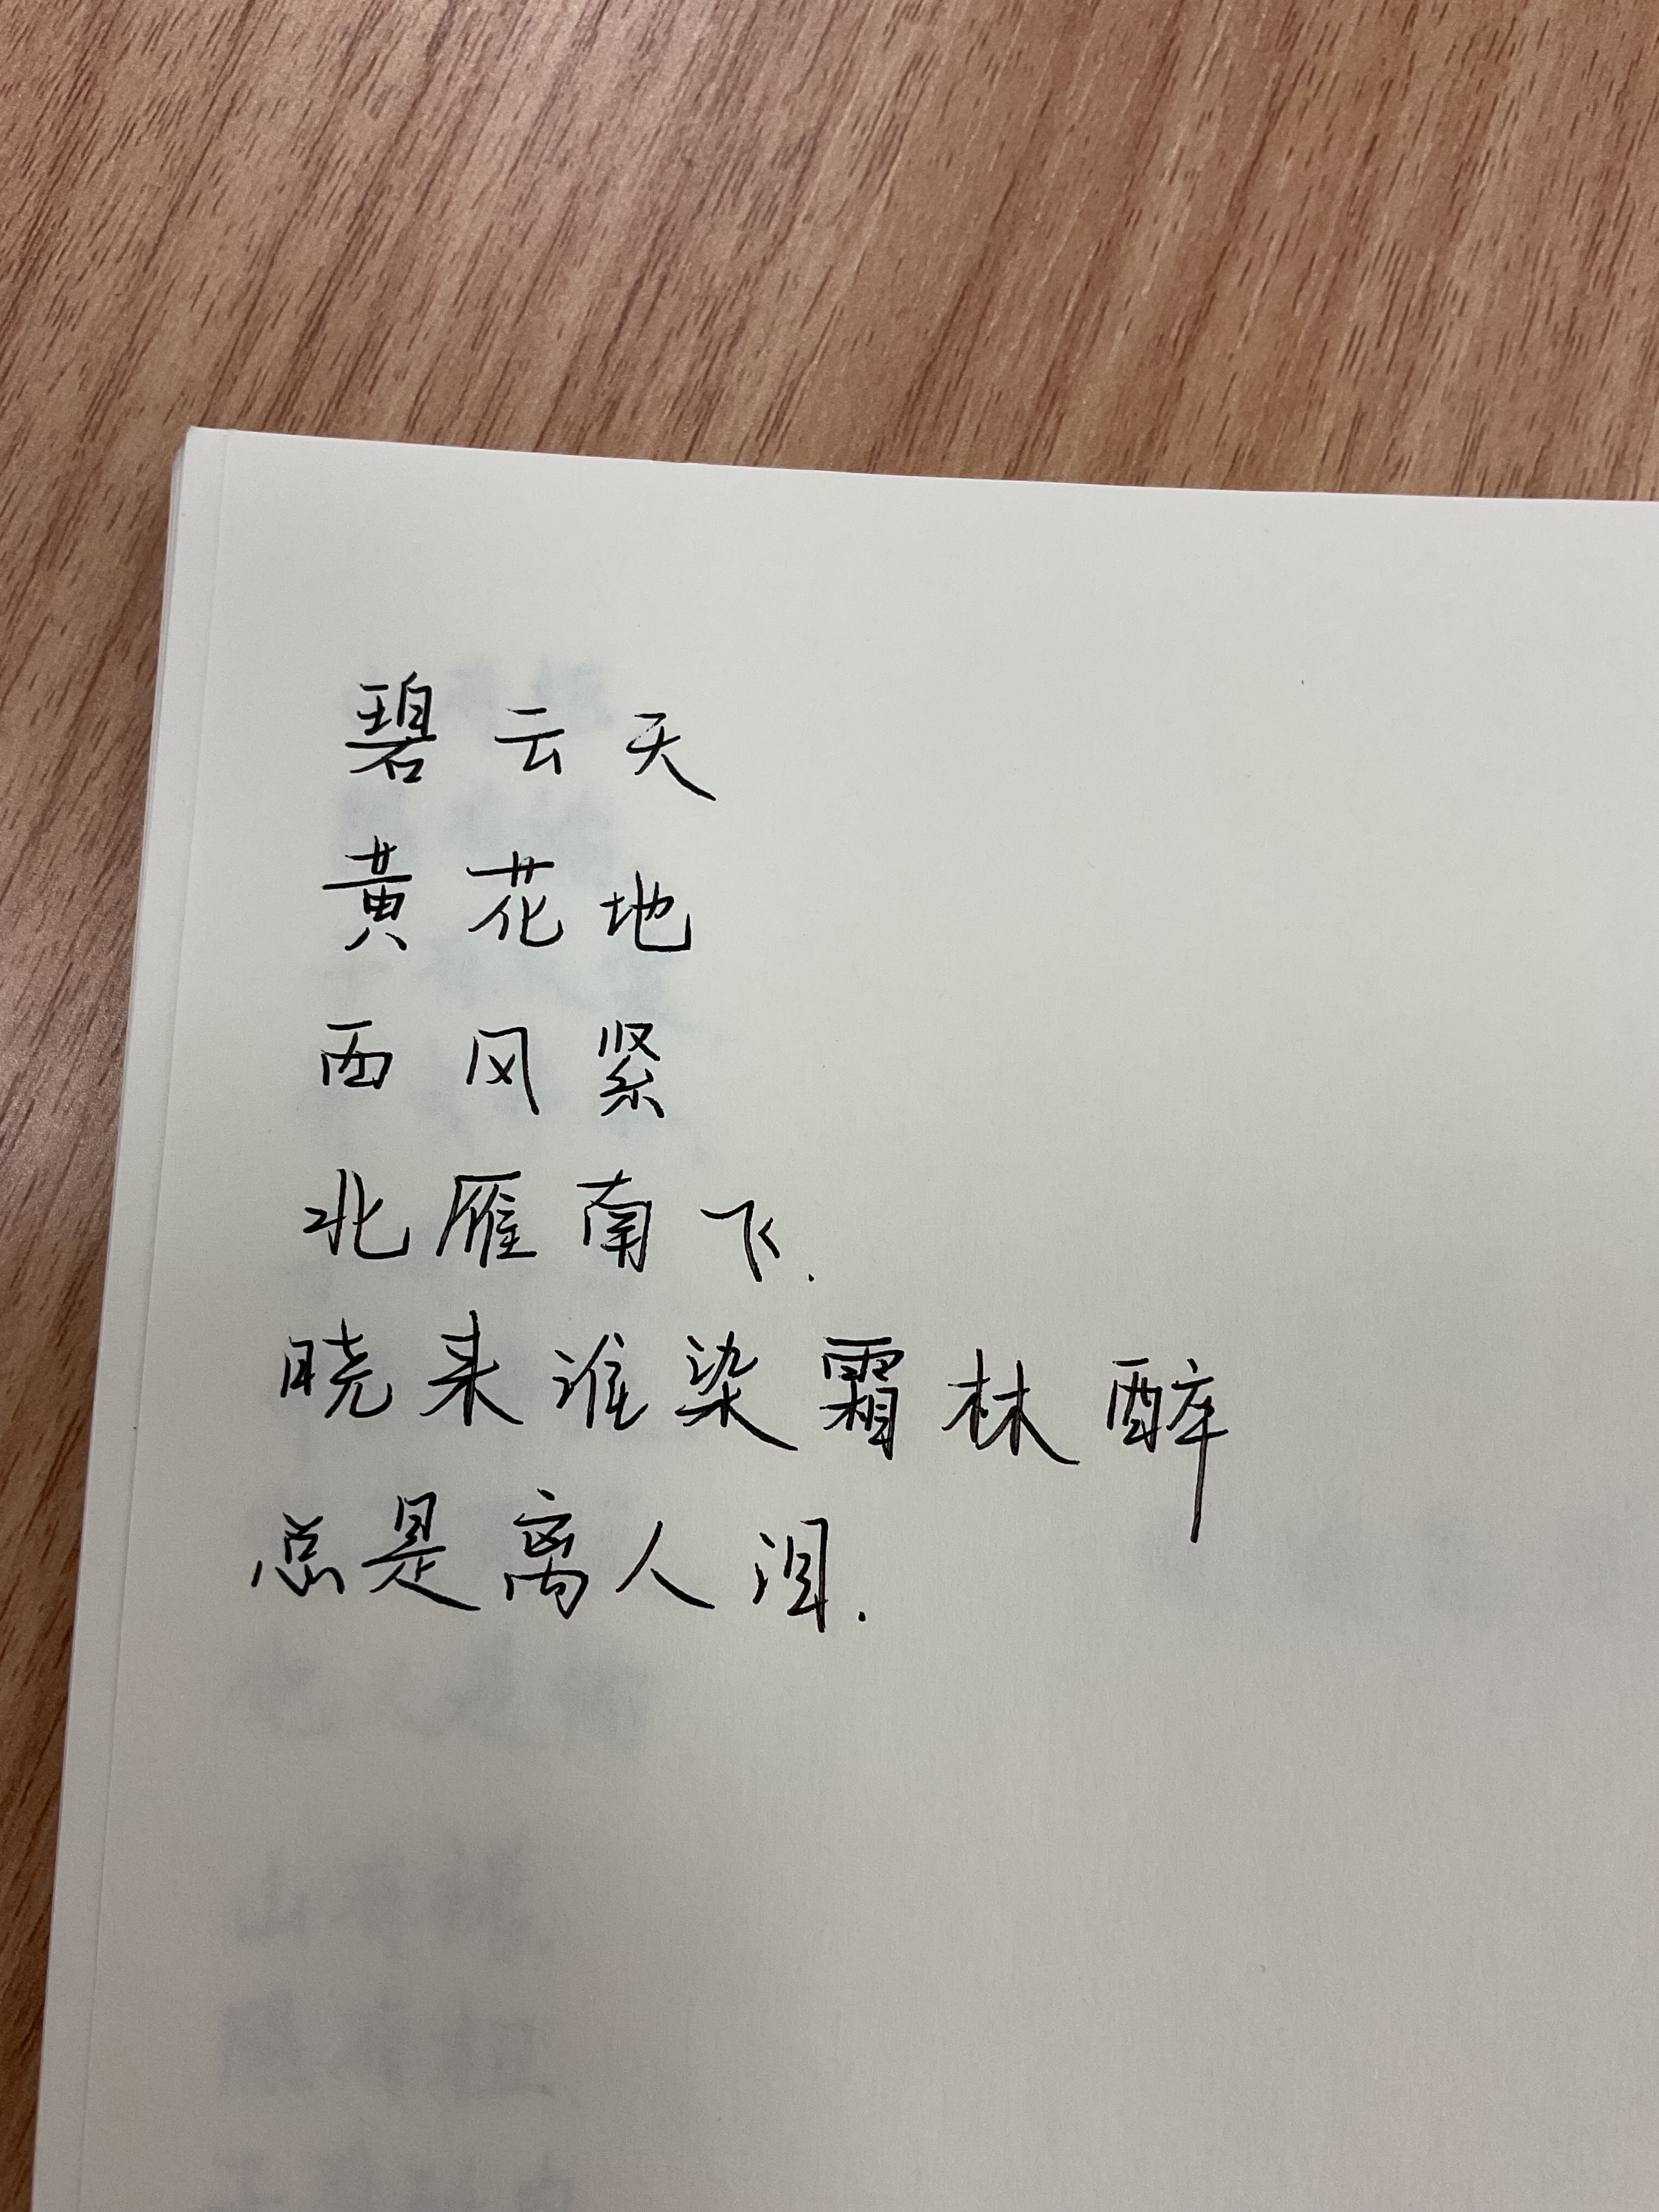 碧云天
黄花地
西风紧
北雁南飞.
晓来谁染霜林醉
总是离人泪.